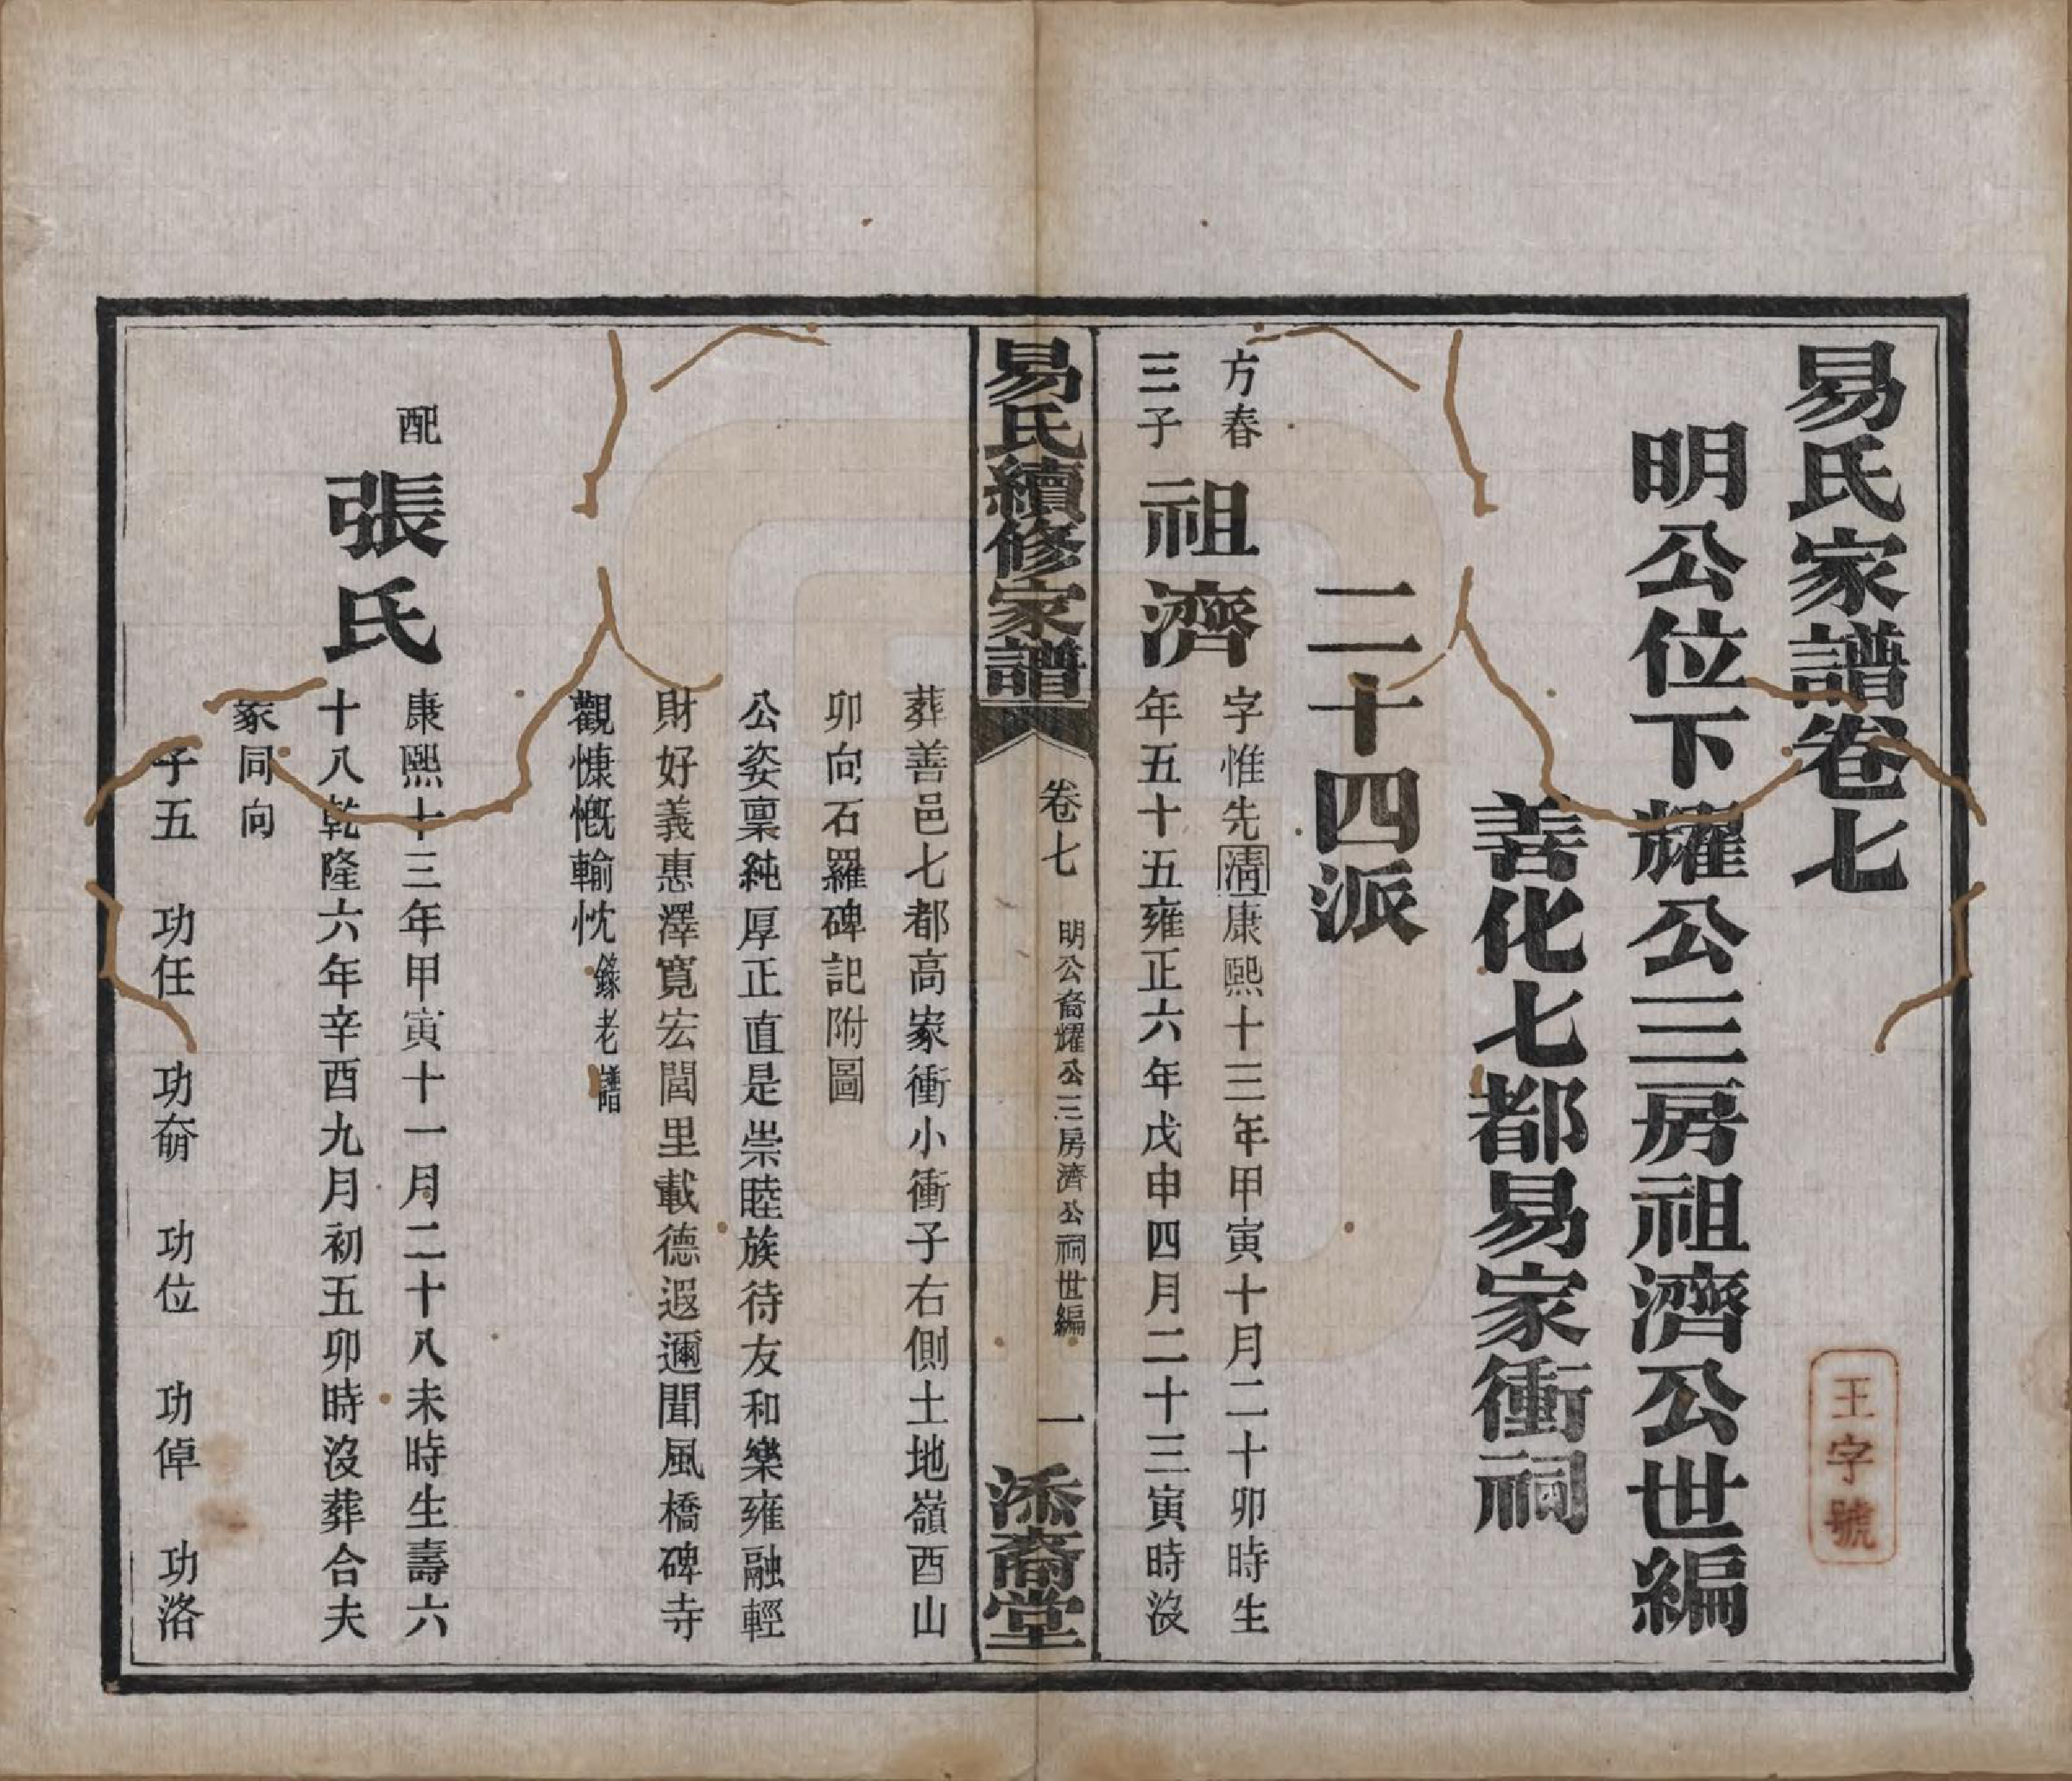 易氏家譜卷七
王字號
明公位下耀公三房祖濟公世編
善化七都易家衝祠
二十四派
方春
三子
祖濟
字惟先清康熙十三年甲寅十月二十卯時生
年五十五雍正六年戊申四月二十三寅時沒
易氏續修家譜
卷七
明公裔耀公三房濟公祠世編
一
添裔堂
葬善邑七都高家衝小衝子右側土地嶺酉山
卯向石羅碑記附圖
公姿稟純厚正直是崇睦族待友和樂雍融輕
財好義惠澤寬宏閭里載德遐邇聞風橋碑寺
觀慷慨輸忱錄老譜
配
張氏
康熙十三年甲寅十一月二十八未時生壽六
十八乾隆六年辛酉九月初五卯時沒葬合夫
冢同向
子五 功任 功奣 功位 功倬 功洛